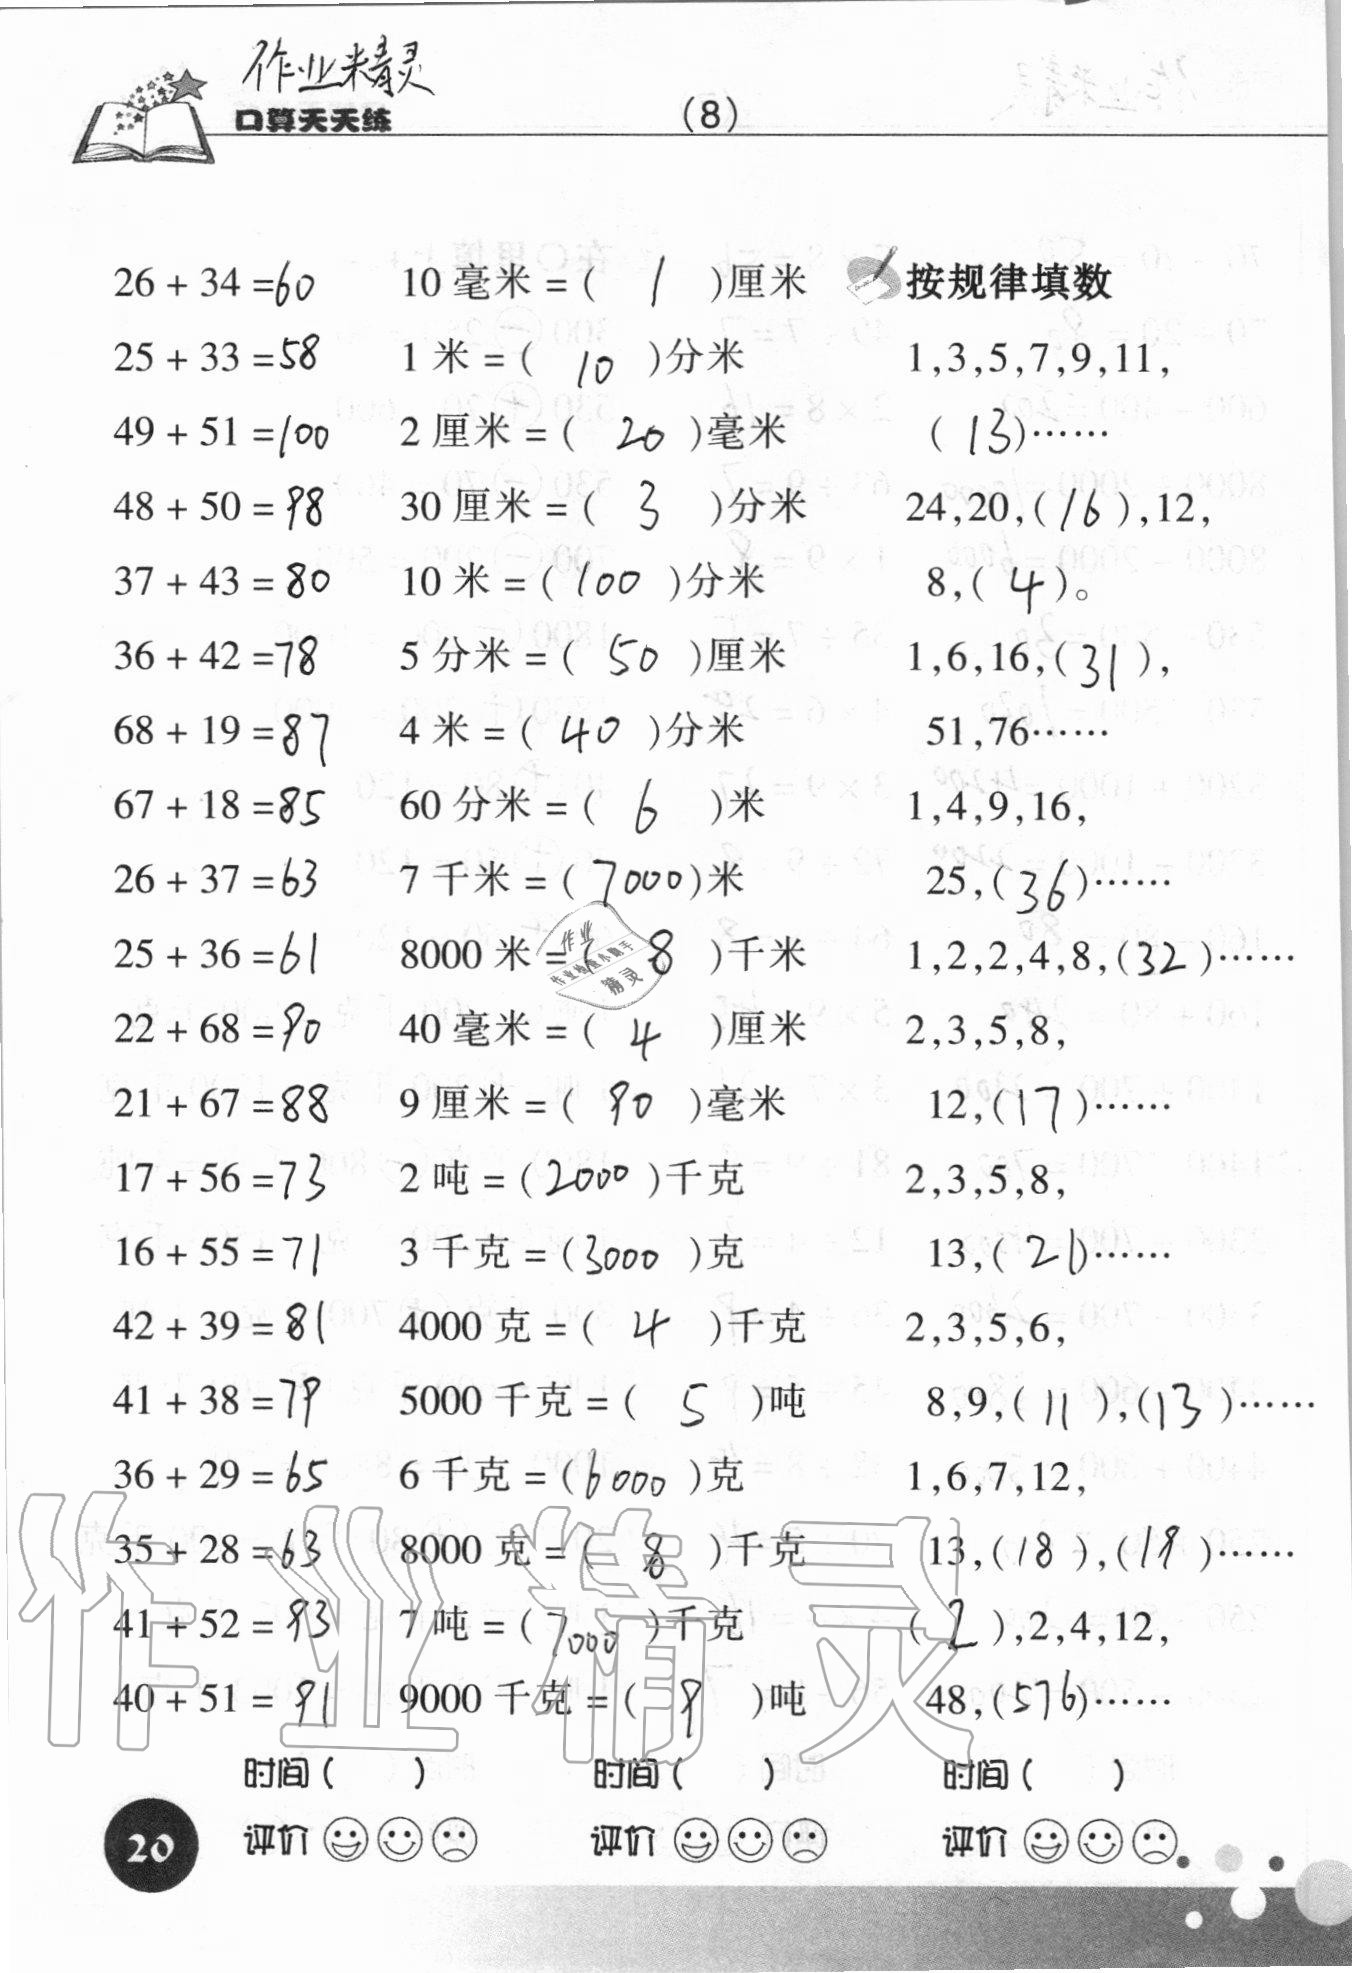 作业来精灵
口算天天练
(8)
26 + 34 = 60
25 + 33 = 58
49 + 51 = 100
48 + 50 = 98
37 + 43 = 80
36 + 42 = 78
68 + 19 = 87
67 + 18 = 85
26 + 37 = 63
25 + 36 = 61
22 + 68 = 90
21 + 67 = 88
17 + 56 = 73
16 + 55 = 71
42 + 39 = 81
41 + 38 = 79
36 + 29 = 65
35 + 28 = 63
41 + 52 = 93
40 + 51 = 91
时间( )
评价
10 毫米 = ( 1 )厘米
1 米 = ( 10 )分米
2 厘米 = ( 20 )毫米
30 厘米 = ( 3 )分米
10 米 = ( 100 )分米
5 分米 = ( 50 )厘米
4 米 = ( 40 )分米
60 分米 = ( 6 )米
7 千米 = ( 7000 )米
8000 米 = ( 8 )千米
40 毫米 = ( 4 )厘米
9 厘米 = ( 90 )毫米
2 吨 = ( 2000 )千克
3 千克 = ( 3000 )克
4000 克 = ( 4 )千克
5000 千克 = ( 5 )吨
6 千克 = ( 6000 )克
8000 克 = ( 8 )千克
7 吨 = ( 7000 )千克
9000 千克 = ( 9 )吨
时间( )
评价
按规律填数
1,3,5,7,9,11,
( 13 )……
24,20,( 16 ),12,
8,( 4 )。
1,6,16,( 31 ),
51,76……
1,4,9,16,
25,( 36 )……
1,2,2,4,8,( 32 )……
2,3,5,8,
12,( 17 )……
2,3,5,8,
13,( 21 )……
2,3,5,6,
8,9,( 11 ),( 13 )……
1,6,7,12,
13,( 18 ),( 19 )……
( 2 ),2,4,12,
48,( 576 )……
时间( )
评价
20
作业
精灵
作业精灵